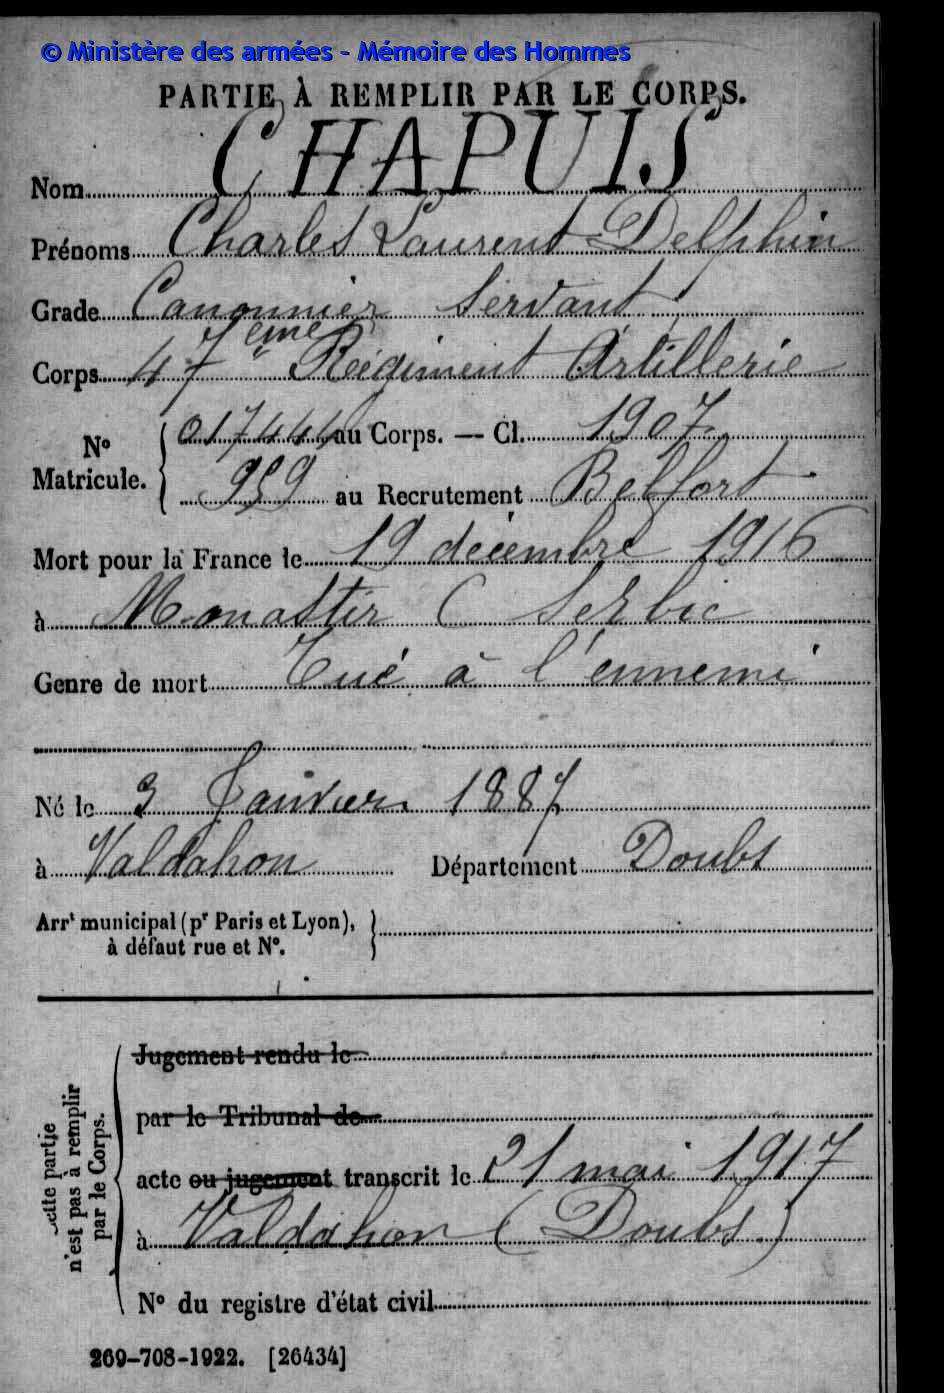 © Ministère des armées - Mémoire des Hommes
PARTIE À REMPLIR PAR LE CORPS.
Nom CHAPUIS
Prénoms Charles Laurent Delphin
Grade Canonnier Servant
Corps 47ème Régiment Artillerie
N° Matricule. 017444 au Corps. — Cl. 1907
959 au Recrutement Belfort
Mort pour la France le 19 décembre 1916
à Monastir ( Serbie
Genre de mort Tué à l'ennemi
Né le 3 Janvier 1887
à Valdahon Département Doubs
Arrt municipal (pr Paris et Lyon),
à défaut rue et N°.
cette partie
n'est pas à remplir
par le Corps.
Jugement rendu le
par le Tribunal de
acte ou jugement transcrit le 21 mai 1917
à Valdahon (Doubs.)
N° du registre d'état civil
269-708-1922. [26434]